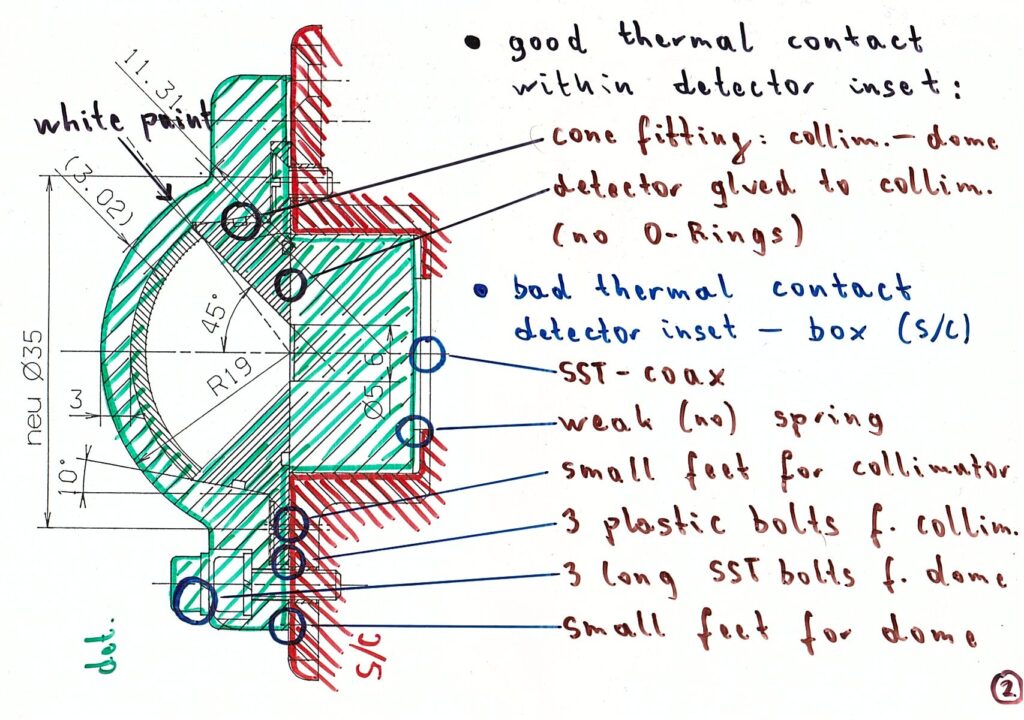 • good thermal contact
within detector inset:
cone fitting: collim. - dome
detector glued to collim.
(no O-Rings)
• bad thermal contact
detector inset - box (S/C)
SST - coax
weak (no) spring
small feet for collimator
3 plastic bolts f. collim.
3 long SST bolts f. dome
small feet for dome
white paint
11.31
(3.02)
neu Ø35
45°
R19
Ø5.6
3
10°
det.
S/C
2